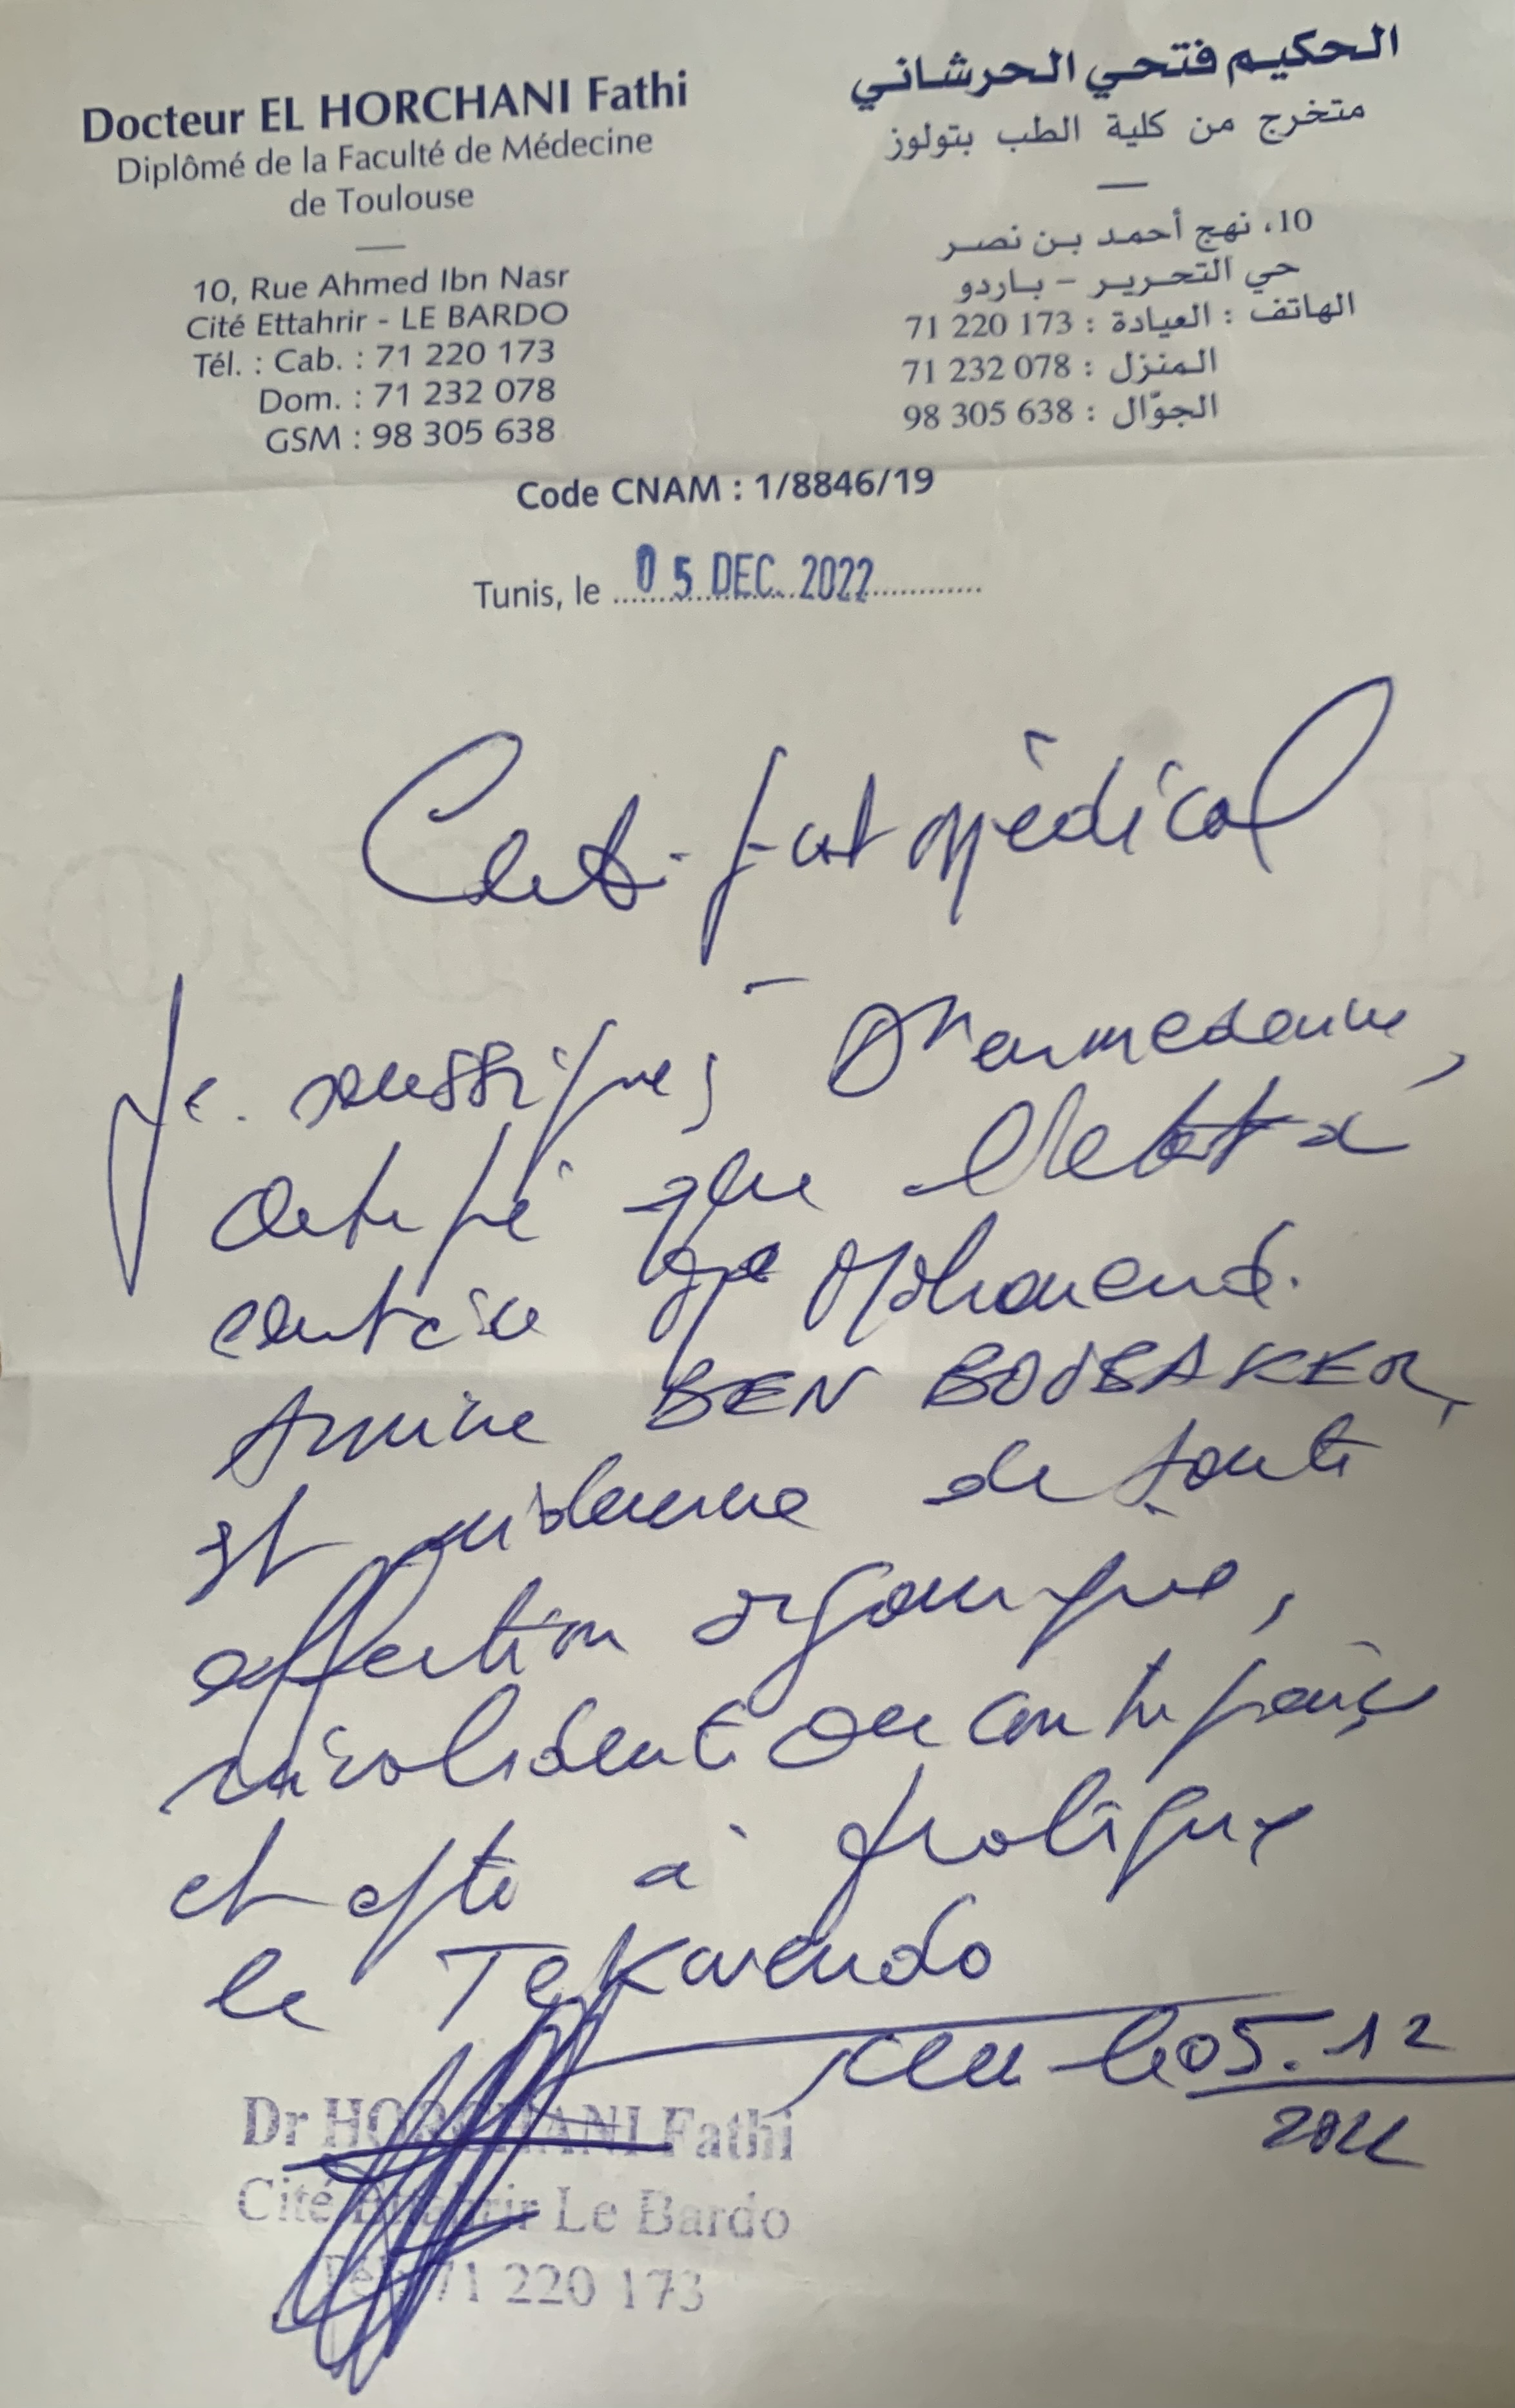 Docteur EL HORCHANI Fathi
Diplômé de la Faculté de Médecine
de Toulouse
10, Rue Ahmed Ibn Nasr
Cité Ettahrir - LE BARDO
Tél. : Cab. : 71 220 173
Dom. : 71 232 078
GSM : 98 305 638
الحكيم فتحي الحرشاني
متخرج من كلية الطب بتولوز
10، نهج أحمد بن نصر
حي التحرير - باردو
الهاتف : العيادة : 173 220 71
المنزل : 078 232 71
الجوّال : 638 305 98
Code CNAM : 1/8846/19
Tunis, le 05 DEC. 2022
Certificat médical
Je soussigné, Dr en médecine,
certifie que
que Mohamed
Amine BEN BOUBAKER,
est indemne de toute
affection organique,
invalidante ou contagieuse
et apte à pratiquer
le Tekwendo
le 05.12
2022
Dr HORCHANI Fathi
Cité Ettahrir Le Bardo
Tél. 71 220 173